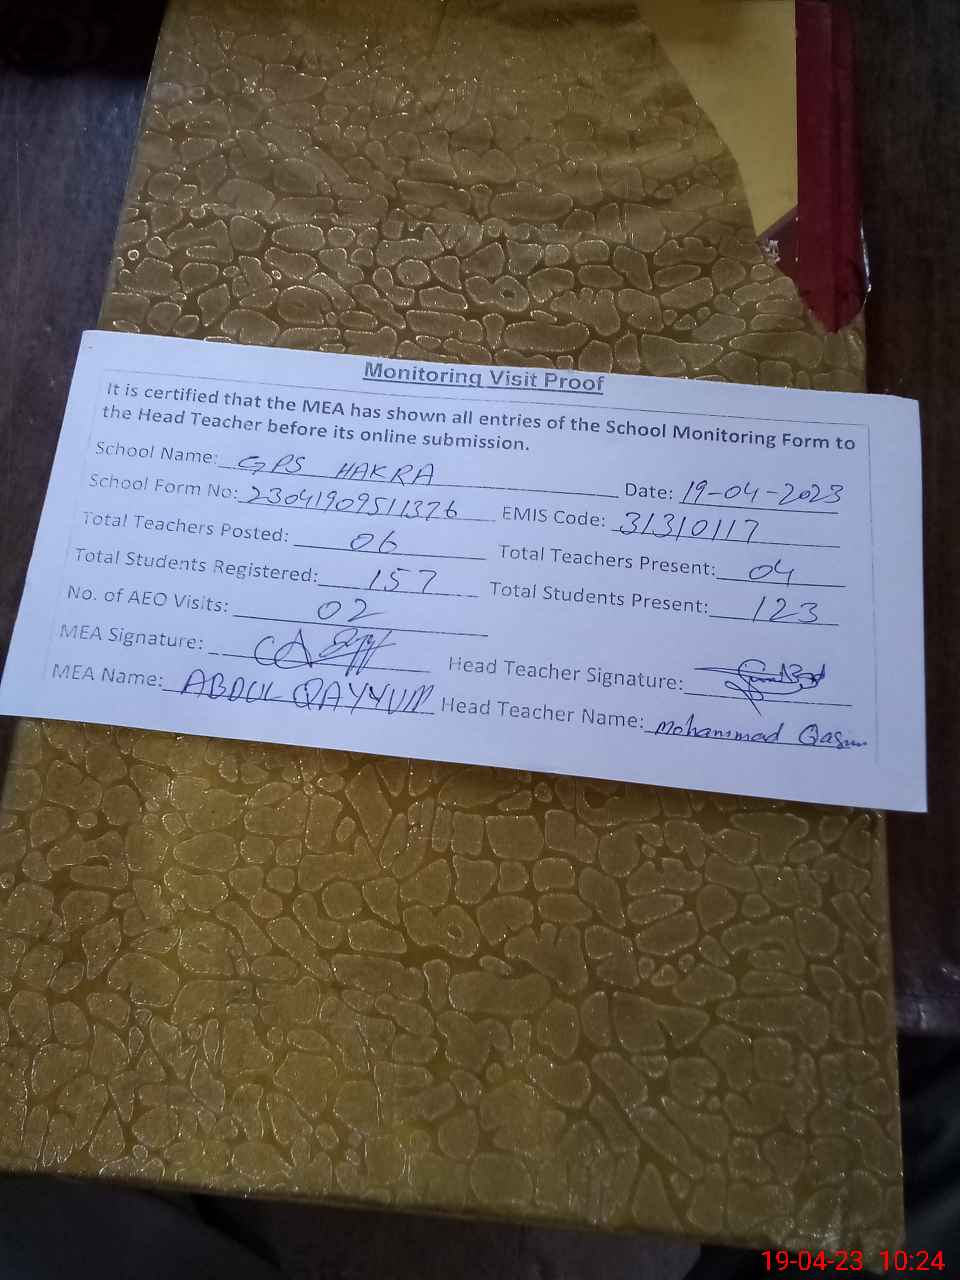 Monitoring Visit Proof
It is certified that the MEA has shown all entries of the School Monitoring Form to
the Head Teacher before its online submission.
School Name: GPS HAKRA Date: 19-04-2023
School Form No: 23041909511376 EMIS Code: 31310117
Total Teachers Posted: 06 Total Teachers Present: 04
Total Students Registered: 157 Total Students Present: 123
No. of AEO Visits: 02
MEA Signature: Head Teacher Signature:
MEA Name: ABDUL QAYYUM Head Teacher Name: Mohammad
19-04-23 10:24